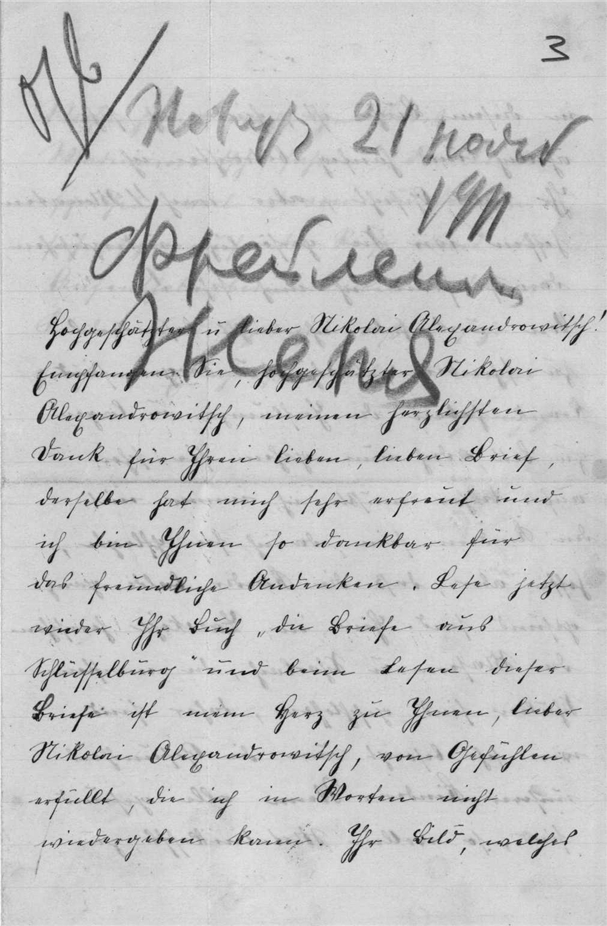 3
21
1911
Фрейлейн
Hochgeschätzter u lieber Nikolai Alexandrowitsch!
Empfangen Sie, hochgeschätzter Nikolai
Alexandrowitsch, meinen herzlichsten
Dank für Ihren lieben, lieben Brief,
derselbe hat mich sehr erfreut und
ich bin Ihnen so dankbar für
das freundliche Andenken. Lese jetzt
wieder Ihr Buch „die Briefe aus
Schlüsselburg" und beim Lesen dieser
Briefe ist mein Herz zu Ihnen, lieber
Nikolai Alexandrowitsch, von Gefühlen
erfüllt, die ich in Worten nicht
wiedergeben kann. Ihr Bild, welches